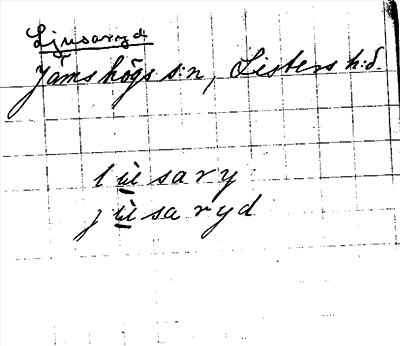 Ljusaryd
Jämshögs s:n, Listers h:d.
lu̲sary
ju̲saryd